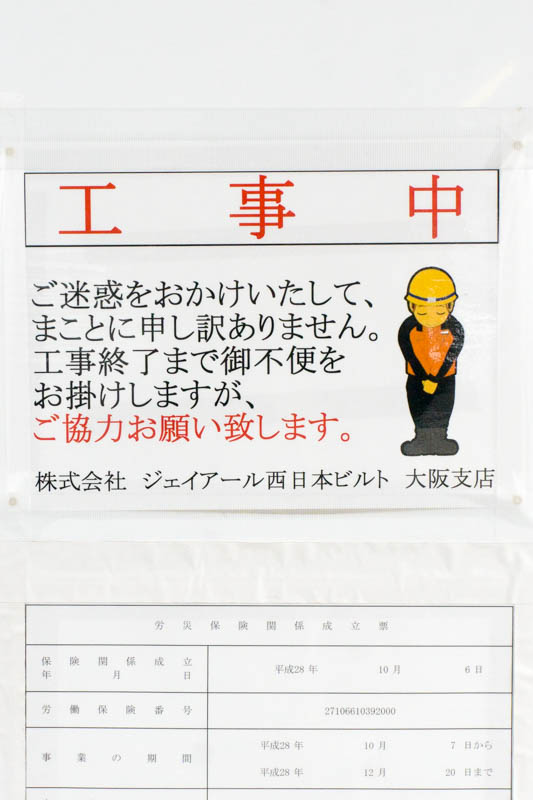 工事中
ご迷惑をおかけいたして、
まことに申し訳ありません。
工事終了まで御不便を
お掛けしますが、
ご協力お願い致します。
株式会社 ジェイアール西日本ビルト 大阪支店
労災保険関係成立票
保険関係成立
年月日
平成28 年 10 月 6 日
労働保険番号 27106610392000
事業の期間
平成28 年 10 月 7 日から
平成28 年 12 月 20 日まで